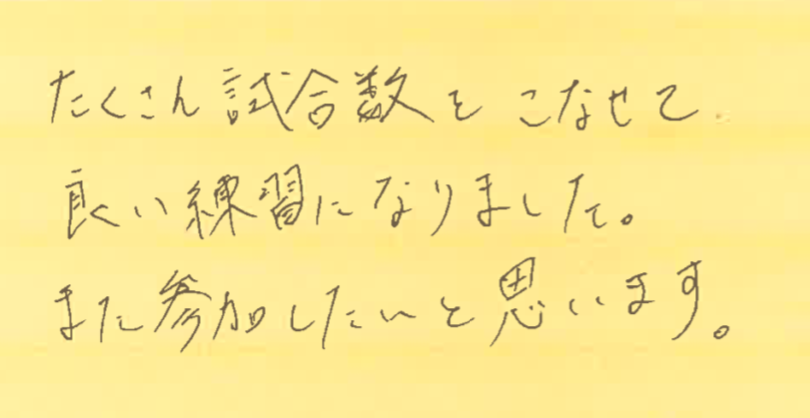 たくさん試合数をこなせて
良い練習になりました。
また参加したいと思います。